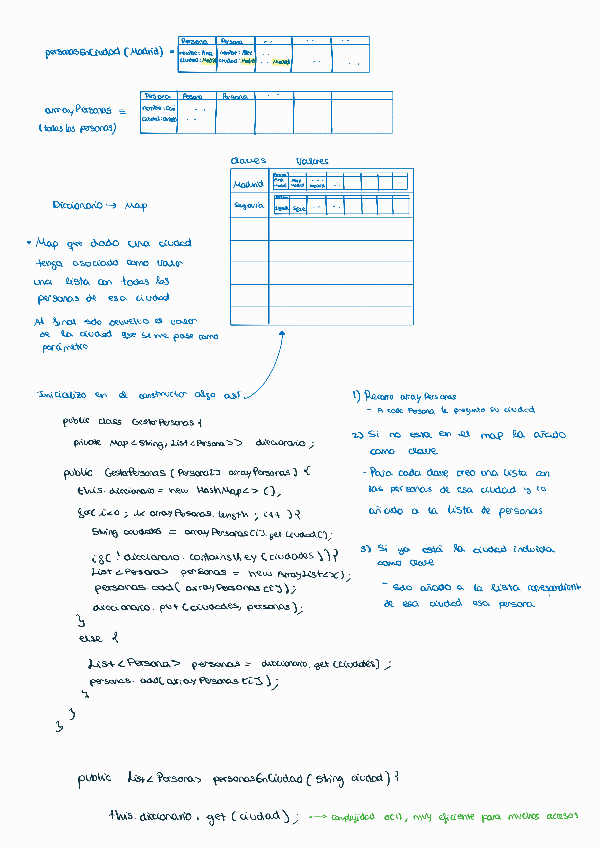 personasEnCiudad (Madrid) =
Persona Persona ...
nombre: Ana nombre: Alex ...
ciudad: Madrid ciudad: Madrid ... Madrid ... ...
arrayPersonas =
(todas las personas)
Persona Persona Persona ...
...
...
claves valores
Madrid
Segovia
Diccionario → Map
• Map que dado una ciudad
tenga asociado como valor
una lista con todas las
personas de esa ciudad
Al final solo devuelvo el valor
de la ciudad que se me pase como
parámetro
Inicializo en el constructor algo así
public class GestorPersonas {
private Map<String, List<Persona>> diccionario ;
public GestorPersonas (Persona[] arrayPersonas) {
this.diccionario = new HashMap<> ();
for (i=0 ; i< arrayPersonas.length ; i++ ) {
String ciudades = arrayPersonas[i].getCiudad();
if ( ! diccionario.containsKey (ciudades) ) {
List<Persona> personas = new ArrayList<>();
personas.add( arrayPersonas [i]);
diccionario.put (ciudades, personas);
}
else {
List<Persona> personas = diccionario.get (ciudades) ;
personas.add(arrayPersonas [i]);
}
}
}
1) Recorro arrayPersonas
- A cada Persona le pregunto su ciudad
2) Si no está en el map la añado
como clave
- Para cada clave creo una lista con
las personas de esa ciudad y lo
añado a la lista de personas
3) Si ya está la ciudad incluida
como clave
- Solo añado a la lista correspondiente
de esa ciudad esa persona
public List<Persona> personasEnCiudad (String ciudad) {
this.diccionario.get (ciudad) ; → complejidad O(1), muy eficiente para muchos accesos